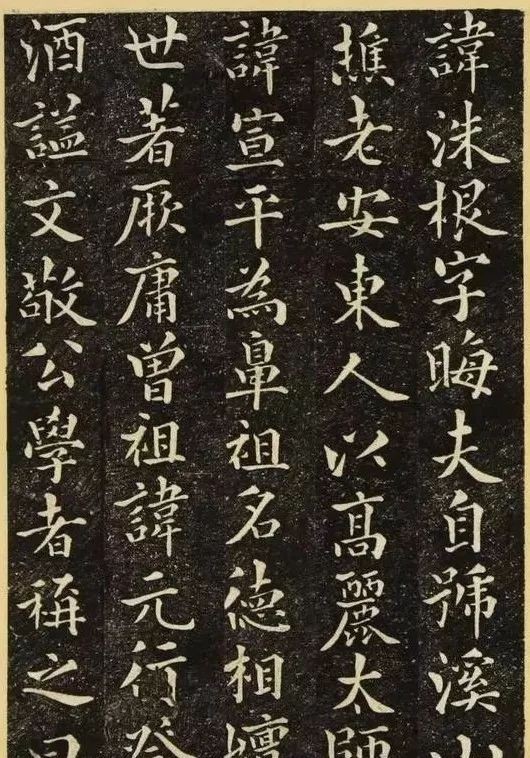 諱洙根字晦夫自號溪山
樵老安東人以高麗太師
諱宣平為鼻祖名德相嬗
世著厥庸曾祖諱元行祭
酒諡文敬公學者稱之曰